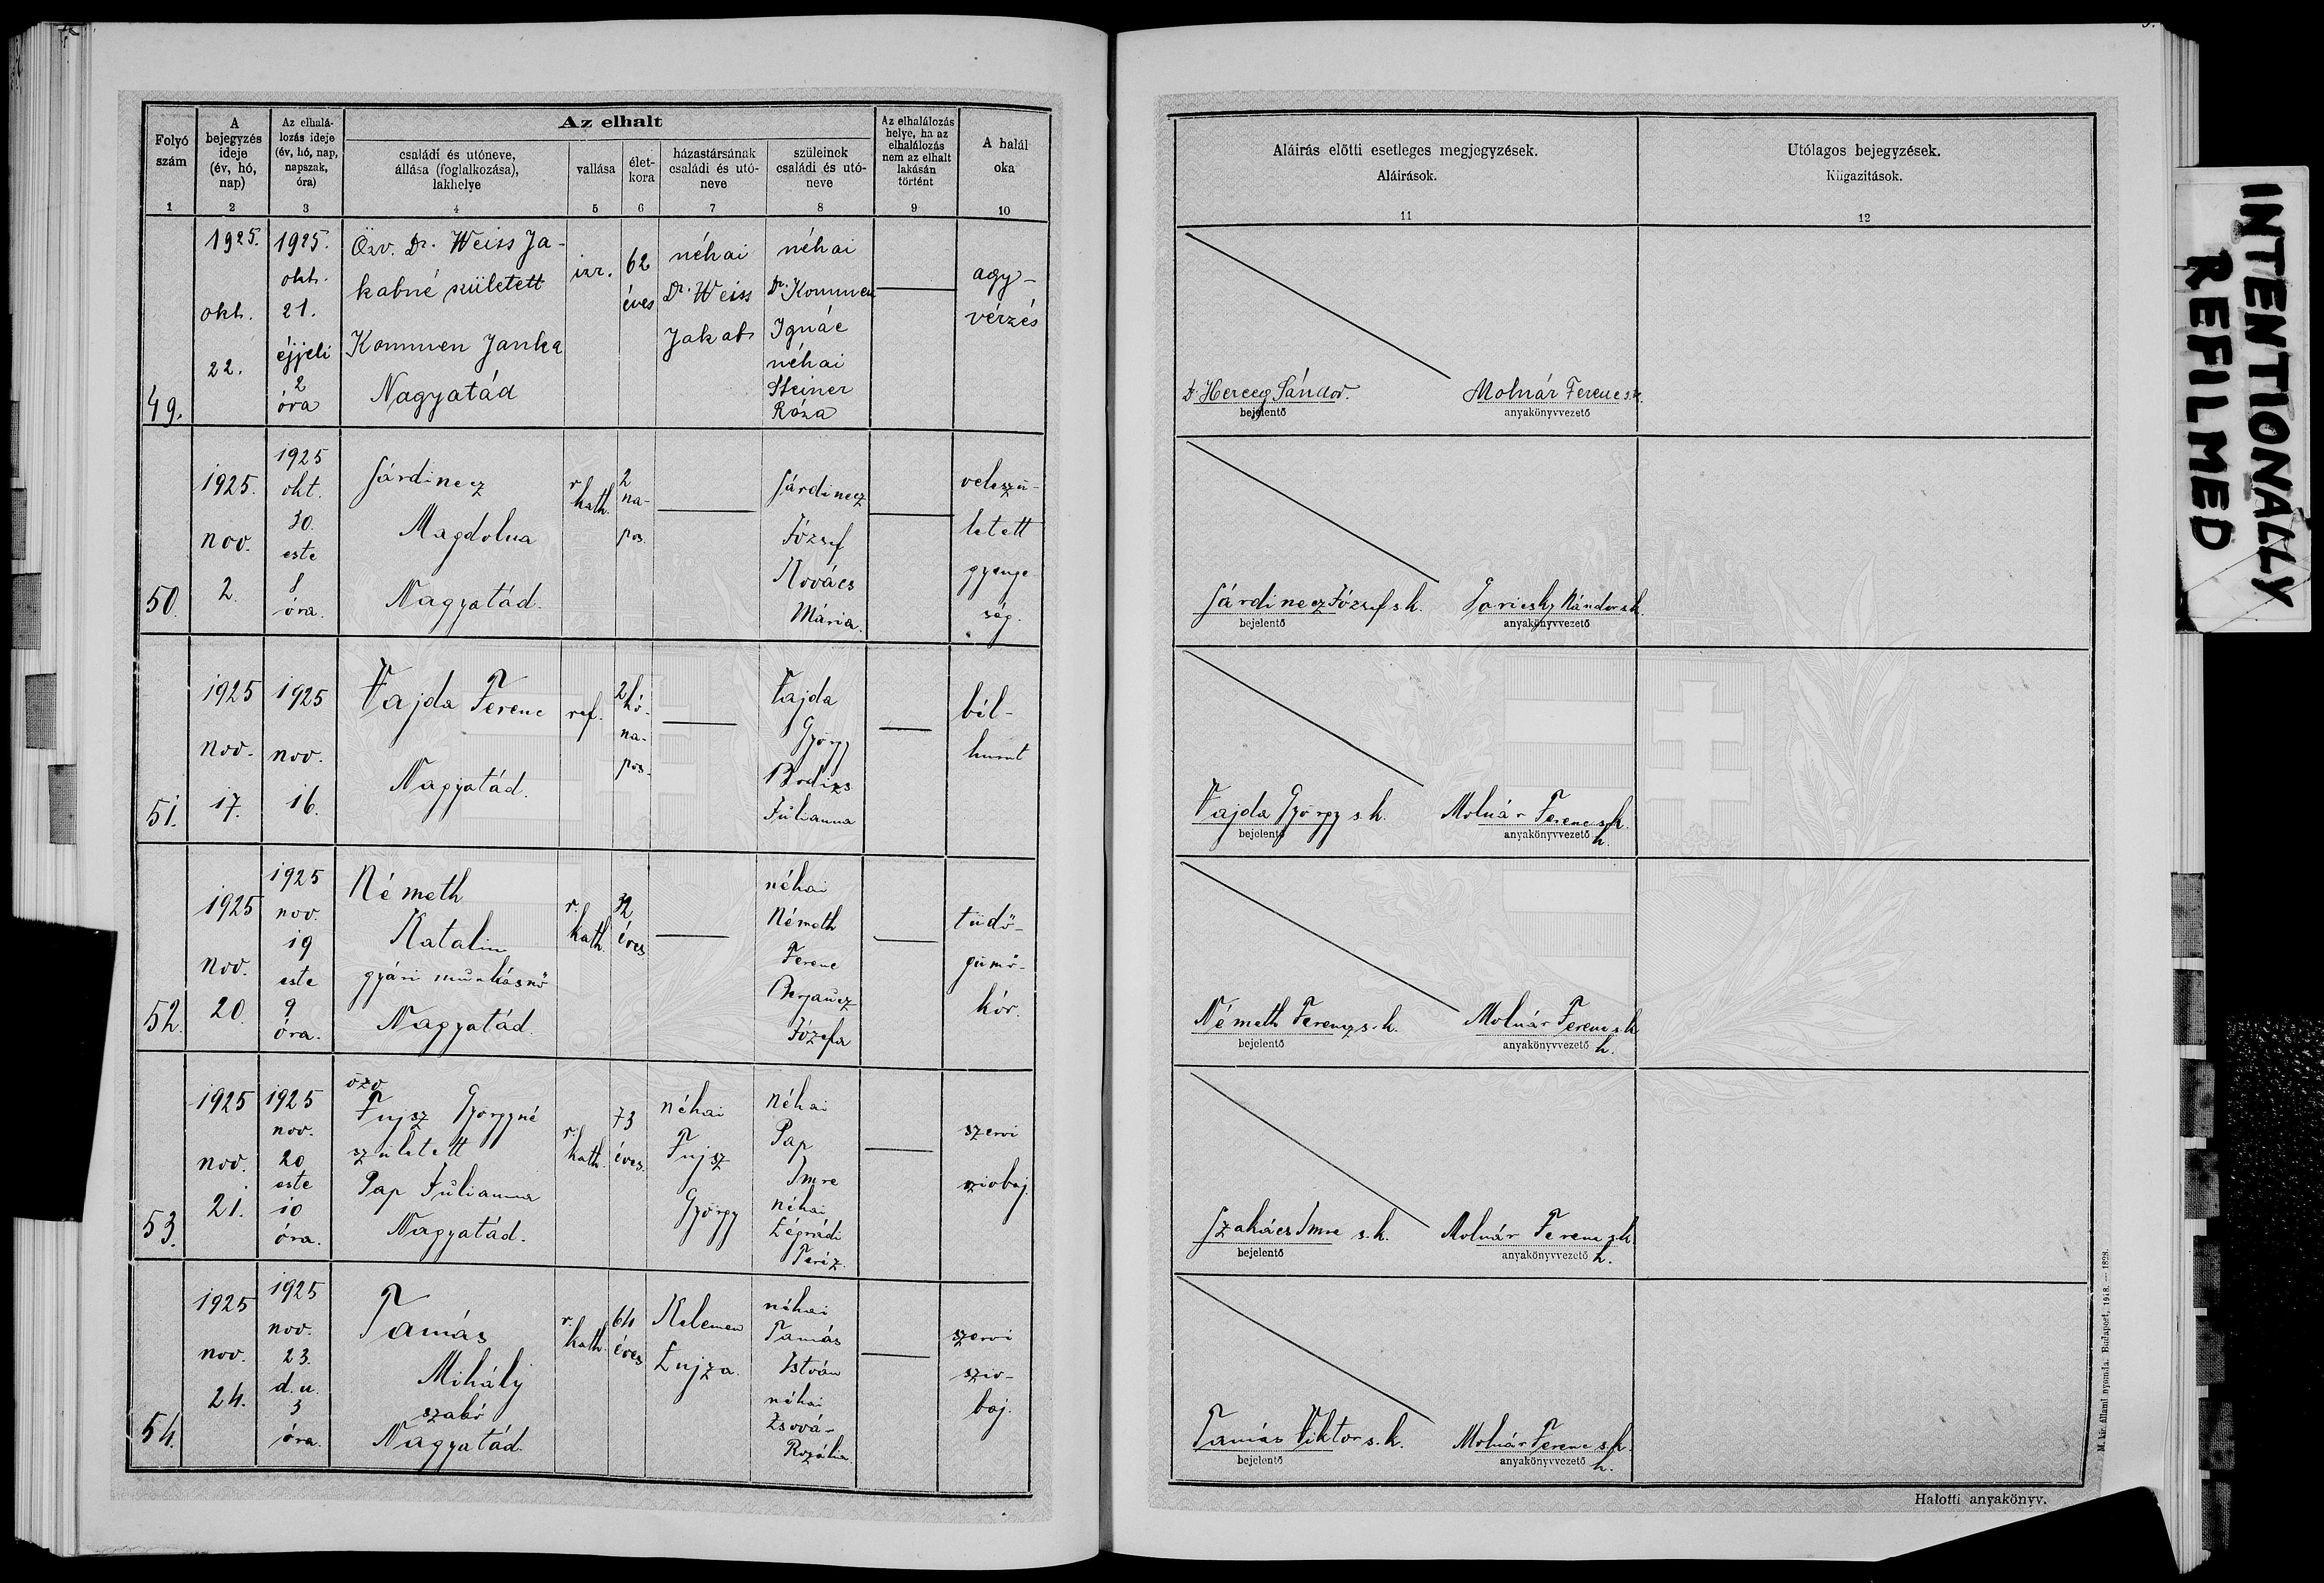 Folyó szám
A bejegyzés ideje (év, hó, nap)
Az elhalálozás ideje (év, hó, nap, napszak, óra)
Az elhalt
családi és utóneve, állása (foglalkozása), lakhelye
vallása
életkora
házastársának családi és utóneve
szüleinek családi és utóneve
Az elhalálozás helye, ha az elhalálozás nem az elhalt lakásán történt
A halál oka
1 2 3 4 5 6 7 8 9 10
49.
1925.
okt.
22.
1925.
okt.
21.
éjjeli
2
óra
Özv. Dr. Weiss Ja-
kabné született
Kommen Janka
Nagyatád
izr.
62
éves
néhai
Dr. Weiss
Jakab
néhai
Dr. Kommen
Ignác
néhai
Steiner
Róza
agy-
vérzés
50.
1925.
nov.
2.
1925
okt.
30.
este
8
óra.
Sárdinecz
Magdolna
Nagyatád.
r.
kath.
2
na-
pos.
Sárdinecz
József
Kovács
Mária.
veleszü-
letett
gyenge
ség.
51.
1925
nov.
17.
1925
nov.
16.
Vajda Ferenc
Nagyatád.
ref.
2 hó-
na-
pos.
Vajda
György
Julianna
bél-
hurut
52.
1925
nov.
20.
1925
nov.
19
este
9
óra.
Németh
Katalin
gyári munkásnő
Nagyatád.
r.
kath.
32
éves
néhai
Németh
Ferenc
Józefa
tüdő-
gümő-
kór.
53.
1925
nov.
21.
1925
nov.
20
este
10
óra.
özv
Fujsz Györgyné
született
Pap Julianna
Nagyatád.
r.
kath.
73
éves.
néhai
Fujsz
György
néhai
Pap
Imre
néhai
Légrádi
Teréz.
szervi
szivbaj.
54.
1925
nov.
24.
1925
nov.
23.
d.u.
3
óra.
Tamás
Mihály
szabó
Nagyatád.
r.
kath.
64
éves
Kelemen
Lujza.
néhai
Tamás
István
néhai
Rozália.
szervi
sziv-
baj.
Aláirás előtti esetleges megjegyzések.
Aláirások.
11
Utólagos bejegyzések.
Kiigazitások.
12
Dr. Herceg Sándor. Molnár Ferenc s.k.
bejelentő anyakönyvvezető
Sárdinecz József s.k. Nándor s.k.
bejelentő anyakönyvvezető
Vajda György s.k. Molnár Ferenc s.k.
bejelentő anyakönyvvezető h.
Németh Ferencz s.k. Molnár Ferenc s.k.
bejelentő anyakönyvvezető h.
Szakács Imre s.k. Molnár Ferenc s.k.
bejelentő anyakönyvvezető h.
Tamás Viktor s.k. Molnár Ferenc s.k.
bejelentő anyakönyvvezető h.
M. kir. állami nyomda. Budapest, 1918. — 1828.
Halotti anyakönyv.
INTENTIONALLY
REFILMED